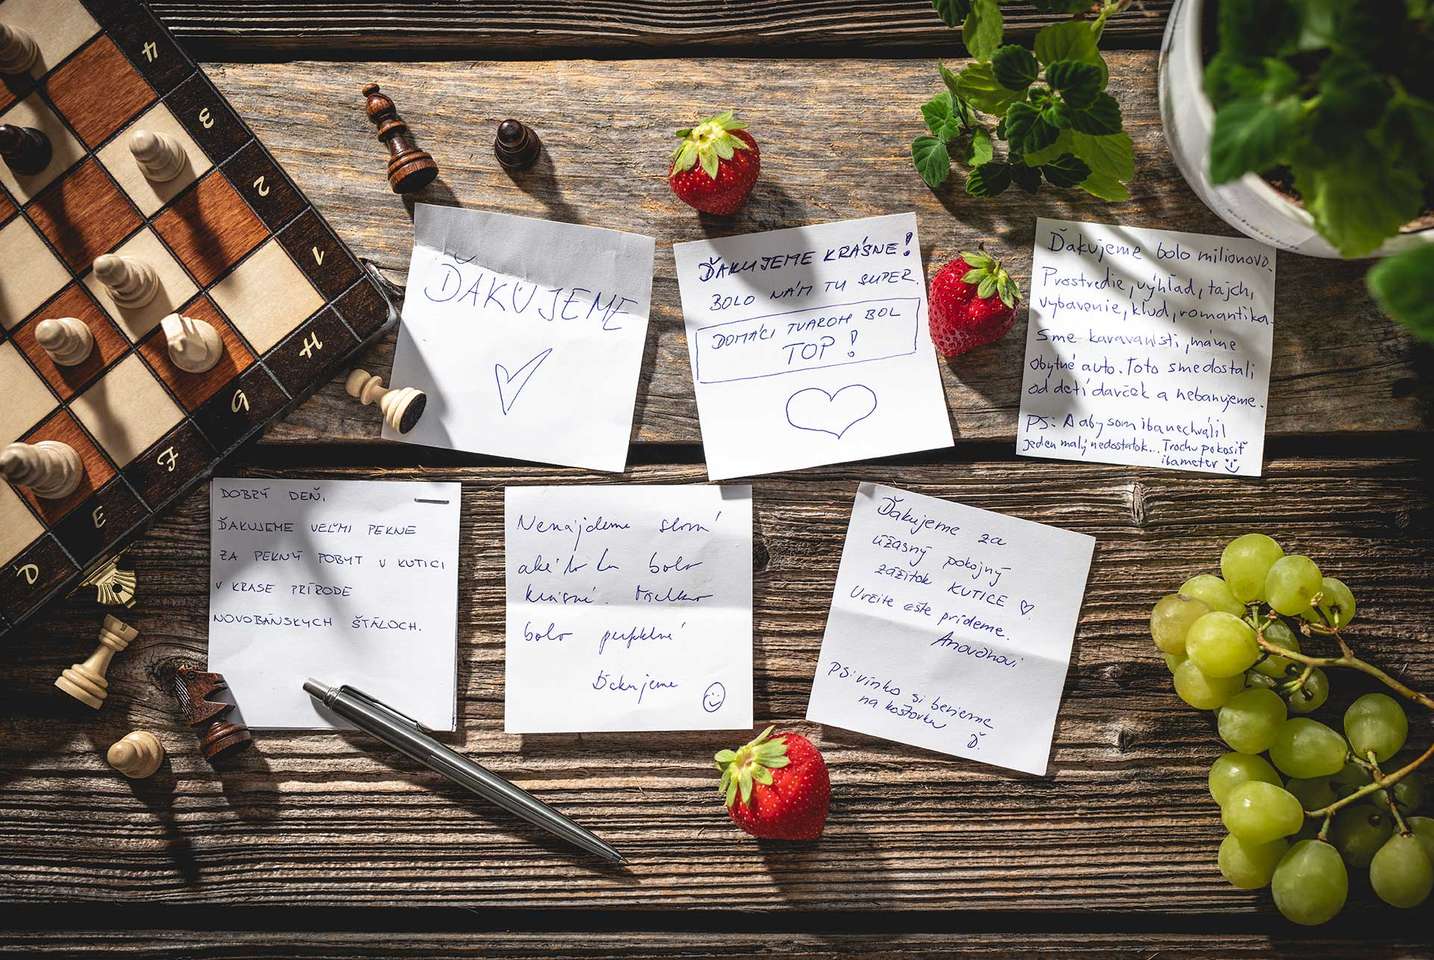 4
3
2
1
H
G
F
E
D
ĎAKUJEME
ĎAKUJEME KRÁSNE!
BOLO NÁM TU SUPER.
DOMÁCI TVAROH BOL
TOP!
Ďakujeme bolo milionovo.
Prostredie, výhľad, tajch,
vybavenie, kľud, romantika.
Sme karavanisti, máme
obytné auto. Toto sme dostali
od detí darček a nebanujeme.
PS: A aby som iba nechválil
jeden malý nedostatok... Trochu pokosiť
DOBRÝ DEŇ,
ĎAKUJEME VEĽMI PEKNE
ZA PEKNÝ POBYT V KUTICI
V KRASE PRÍRODE
NOVOBÁNSKYCH ŠTÁLOCH.
Nenájdeme slová
aké to tu bolo
krásné. Všetko
bolo perfektné
Ďekujeme
Ďakujeme za
úžasný pokojný
zážitok KUTICE
Určite ešte prídeme.
PS: vínko si berieme
na koštovku
Ď.